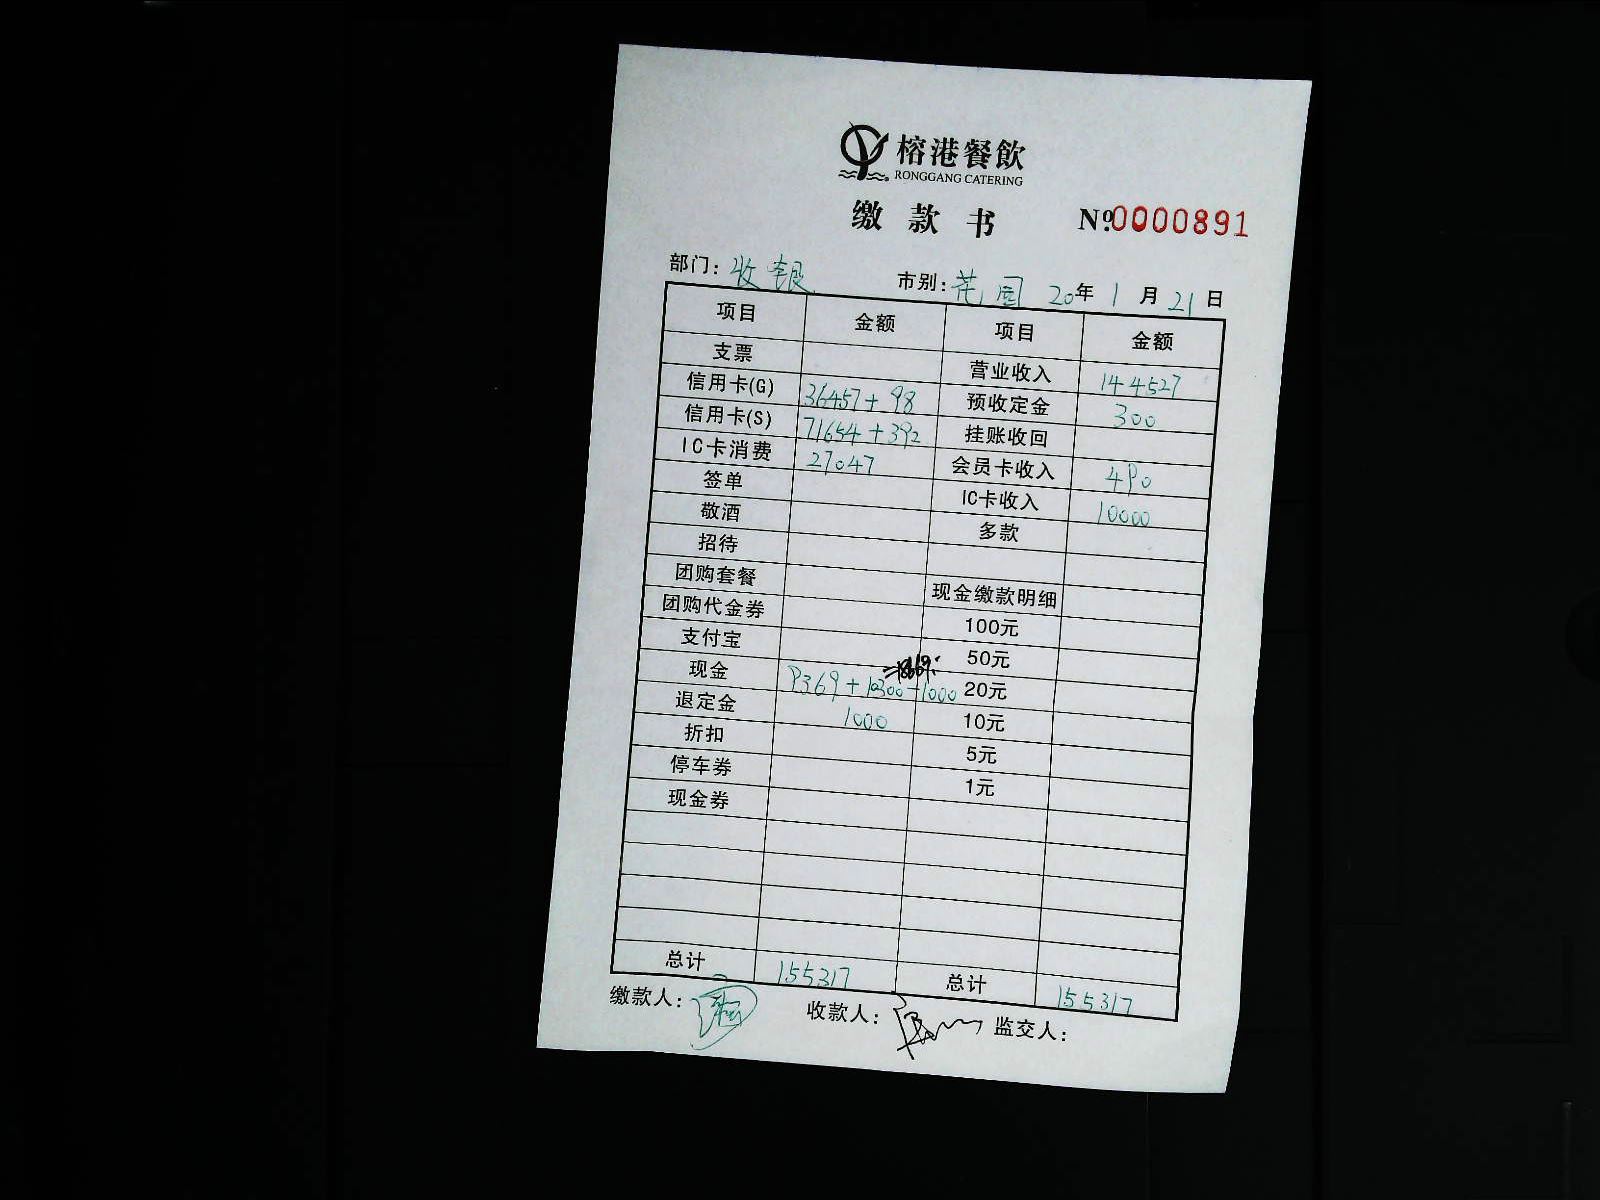 榕港餐飲
RONGGANG CATERING
缴款书 Nº 0000891
部门: 收银 市别: 花园 20年 1月 21日
项目 金额 项目 金额
支票 营业收入 144527
信用卡(G) 36457+98 预收定金 300
信用卡(S) 71654+392 挂账收回
IC卡消费 27047 会员卡收入 490
签单 IC卡收入 10000
敬酒 多款
招待
团购套餐 现金缴款明细
团购代金券 100元
支付宝 50元
=18669.
现金 9369+10300-1000 20元
退定金 1000 10元
折扣 5元
停车券 1元
现金券
总计 155317 总计 155317
缴款人: 收款人: 监交人: